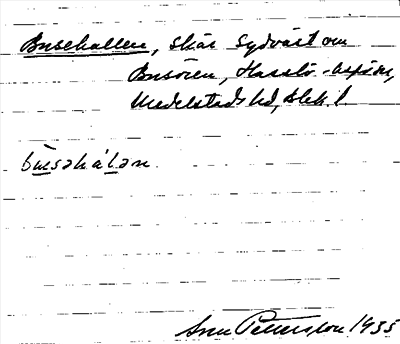 Busehallen, skär sydväst om
Busören, Hasslö
Medelstads hd, Blek. l
busəhálən.
Sven Pettersson 1935